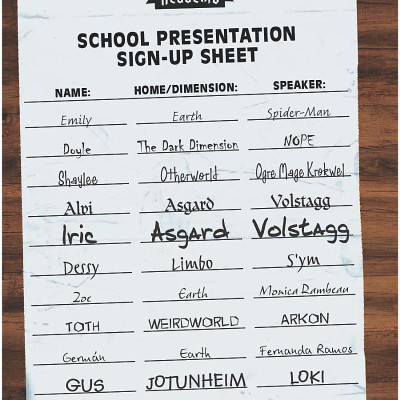 ACADEMY
SCHOOL PRESENTATION
SIGN-UP SHEET
NAME: HOME/DIMENSION: SPEAKER:
Emily Earth Spider-Man
Doyle The Dark Dimension NOPE
Shaylee Otherworld Ogre Mage Krokwel
Alvi Asgard Volstagg
Iric Asgard Volstagg
Dessy Limbo S'ym
Zoe Earth Monica Rambeau
TOTH WEIRDWORLD ARKON
Germán Earth Fernanda Ramos
GUS JOTUNHEIM LOKI